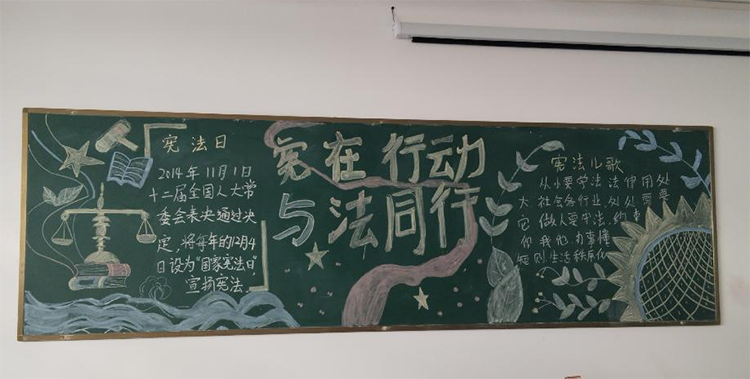 宪法日
2014年11月1日
十二届全国人大常
委会表决通过决
定，将每年的12月4
日设为"国家宪法日"，
宣扬宪法
宪在行动
与法同行
宪法儿歌
从小要学法 法伴用处
大 社会各行业 处处需要
它 做人要守法 约束
你我他 办事懂
规则 生活秩序化